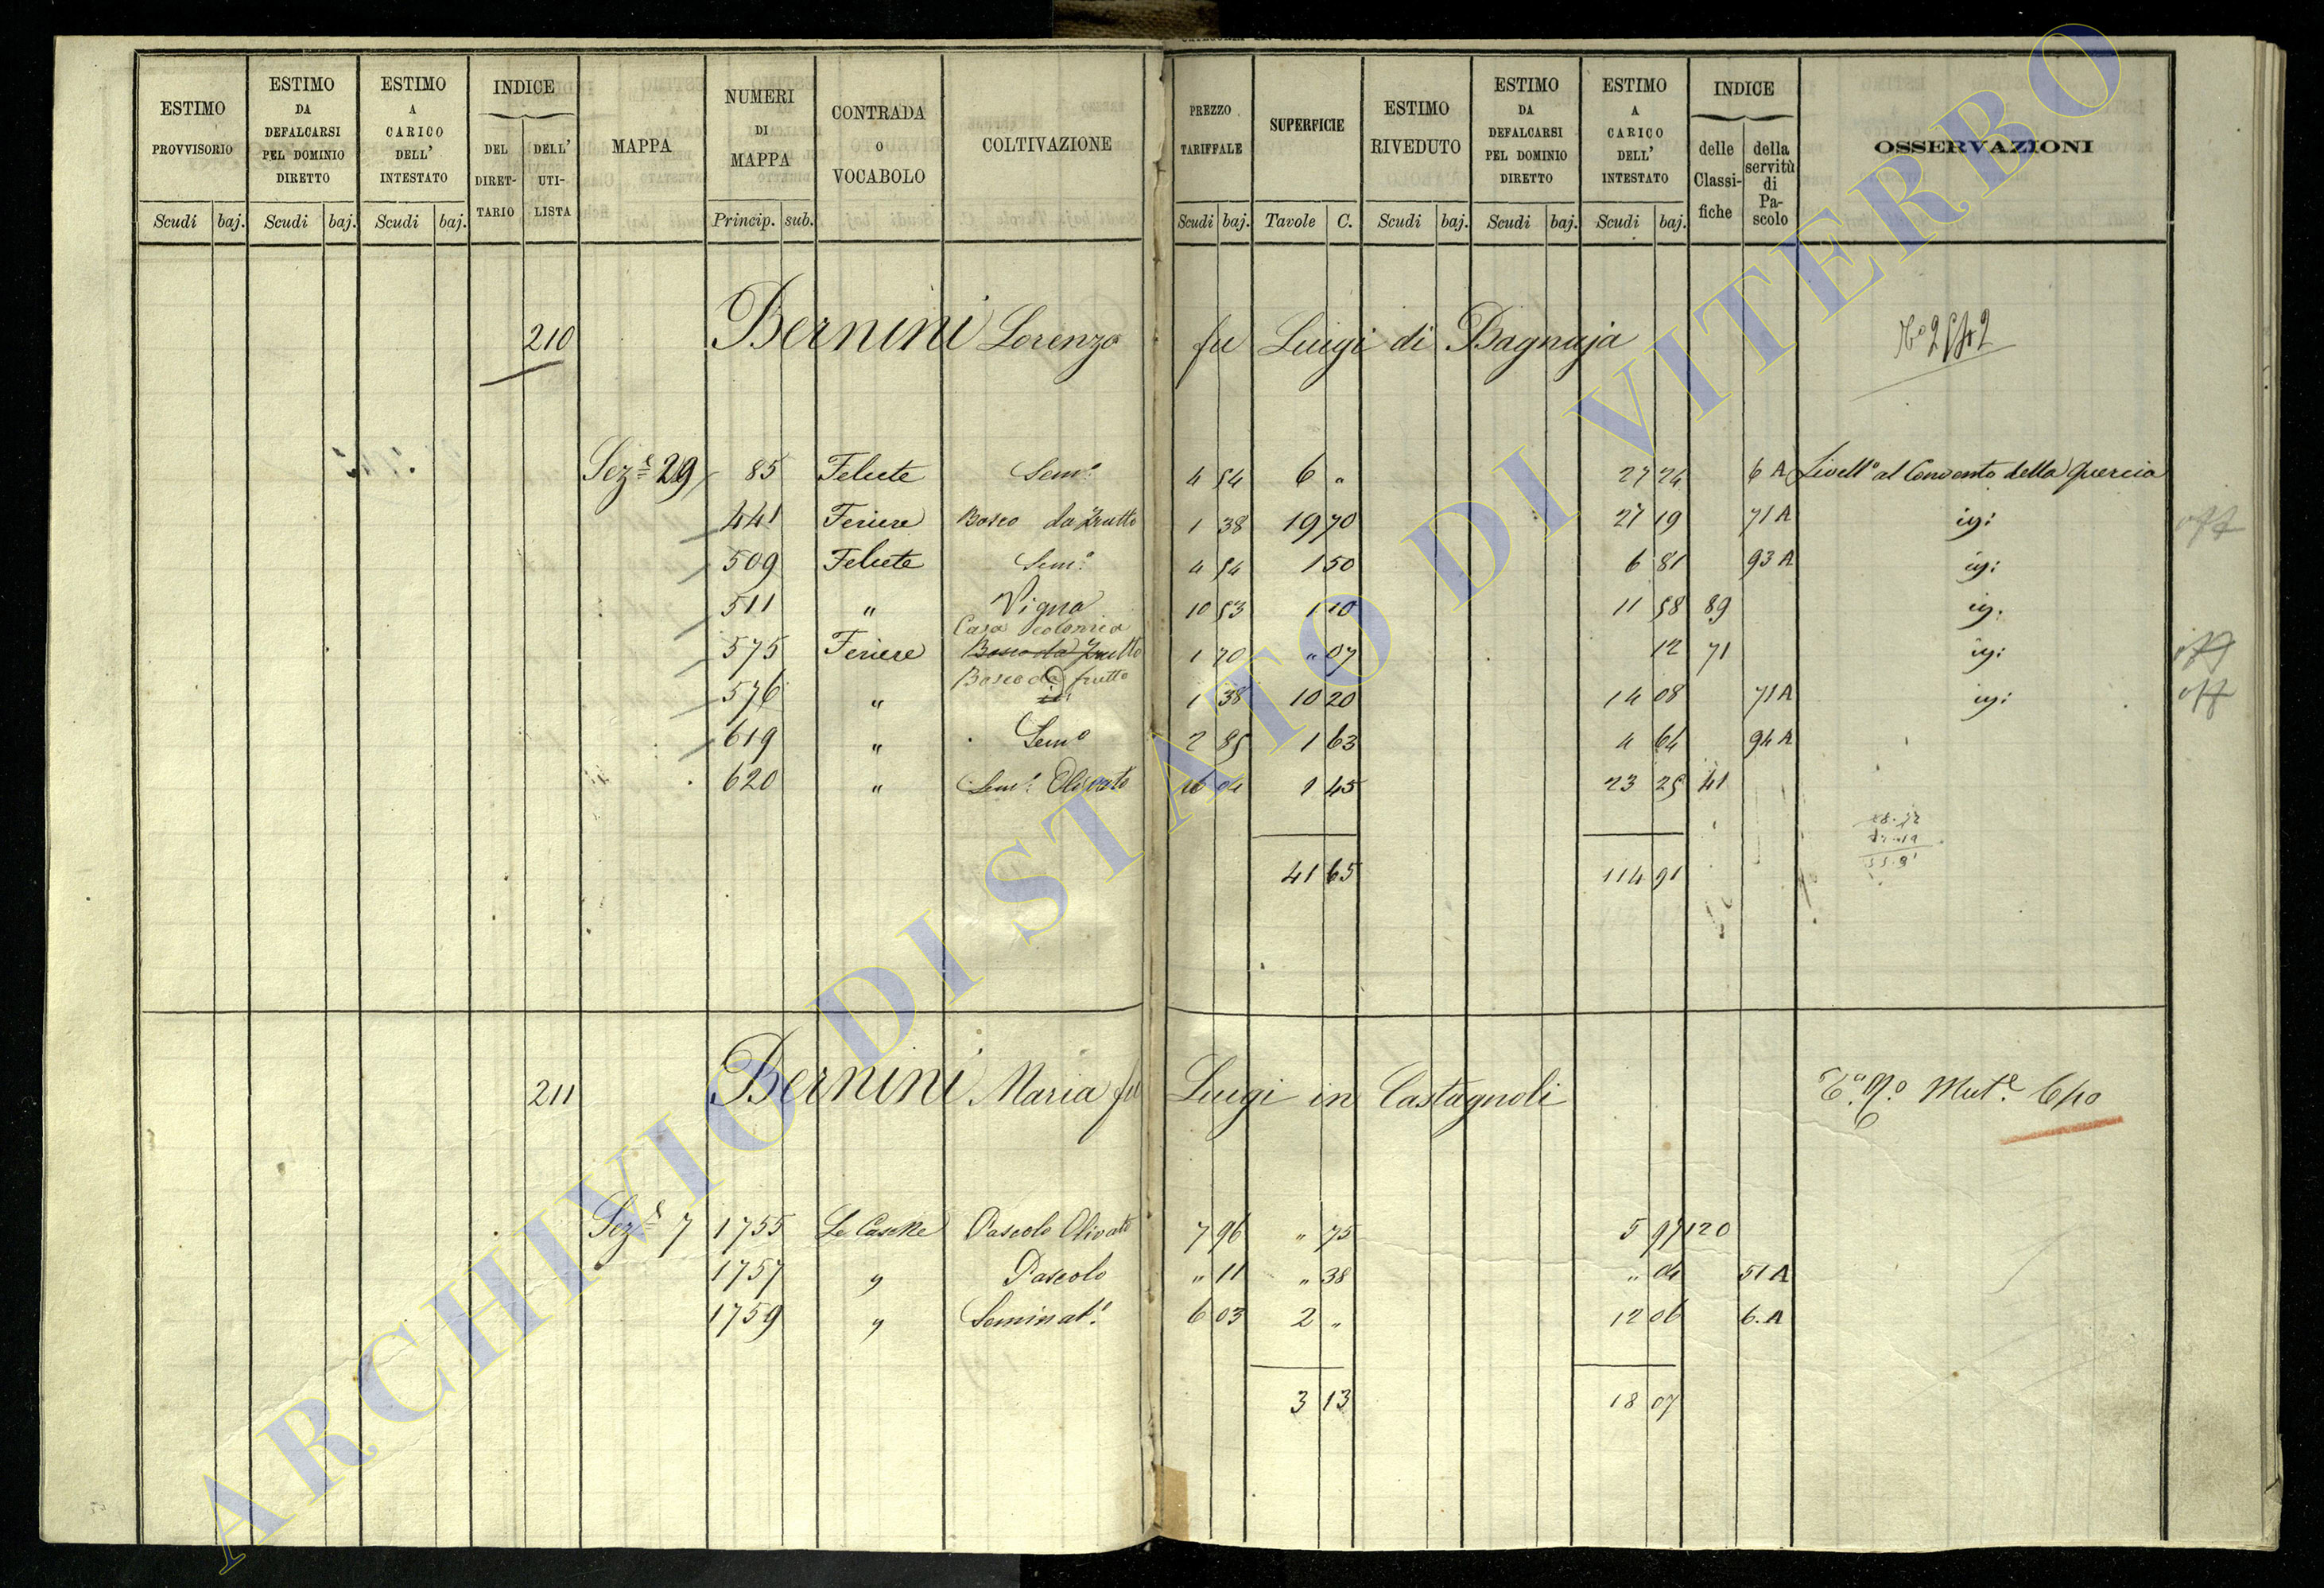 ESTIMO PROVVISORIO
ESTIMO DA DEFALCARSI PEL DOMINIO DIRETTO
ESTIMO A CARICO DELL' INTESTATO
INDICE
DEL DIRETTARIO
DELL' UTILISTA
MAPPA
NUMERI DI MAPPA
CONTRADA O VOCABOLO
COLTIVAZIONE
PREZZO TARIFFALE
SUPERFICIE
ESTIMO RIVEDUTO
ESTIMO DA DEFALCARSI PEL DOMINIO DIRETTO
ESTIMO A CARICO DELL' INTESTATO
INDICE
delle Classifiche
della servitù di Pascolo
OSSERVAZIONI
Scudi baj. Scudi baj. Scudi baj. Princip. sub. Scudi baj. Tavole C. Scudi baj. Scudi baj. Scudi baj.
210 Bernini Lorenzo fu Luigi di Bagnaja
Sez.e 29 85 Felcete Sem.o 4 54 6 " 27 24 6 A Livell.o al Convento della Quercia
441 Feriere Bosco da frutto 1 38 19 70 27 19 71 A igi
509 Felcete Sem.o 4 54 1 50 6 81 93 A igi
511 " Vigna 10 53 1 10 11 58 89 ig.
Casa colonica
575 Feriere Bosco da frutto 1 70 " 07 12 71 igi
Bosco da frutto
576 " 1 38 10 20 14 08 71 A igi
619 " Sem.o 2 85 1 63 4 64 94 A
620 " Sem.o Olivato 16 04 1 45 23 25 41
41 65 114 91
211 Bernini Maria fu Luigi in Castagnoli
Sez.e 7 1755 Le Casche Pascolo Olivato 7 96 " 75 5 97 120
1757 " Pascolo " 11 " 38 " 04 51 A
1759 " Seminat.o 6 03 2 " 12 06 6. A
3 13 18 07
ARCHIVIO DI STATO DI VITERBO